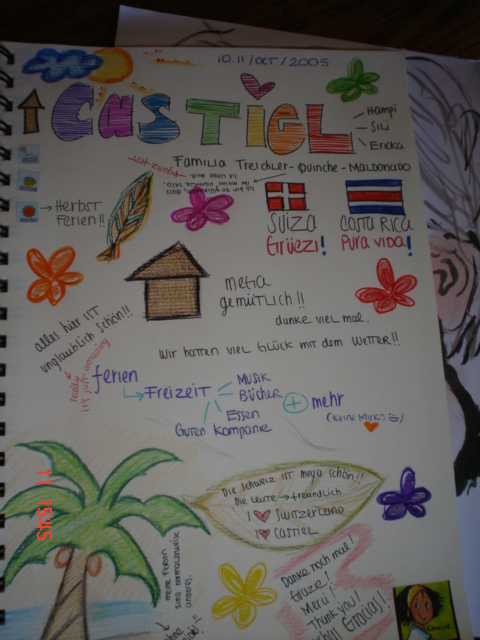 10.11/OCT/2005
CASTIEL
Hampi
Sili
Ericka
FAMILIA TREICHLER-QUINCHE-MALDONADO
→ HERBST
FERIEN!!
SUIZA
GRÜEZI!
COSTA RICA
PURA VIDA!
mega
gemütlich!!
danke viel mal.
alles hier IST
unglaublich schön!!
WIR HATTEN VIEL GLÜCK MIT DEM WETTER!!
ferien
FREIZEIT
MUSIK
BÜCHER
ESSEN
GUTEN KOMPANIE
+ mehr
DIE SCHWEIZ IST MEGA SCHÖN!!
DIE LEUTE → FREUNDLICH
I ♥ SWITZERLAND
I ♥ CASTIEL
meine FERIEN
SIND NORMALERWEISE
ANDERS.
Danke noch mal!
Grazie!
Merci!
Thank you!
Gracias!